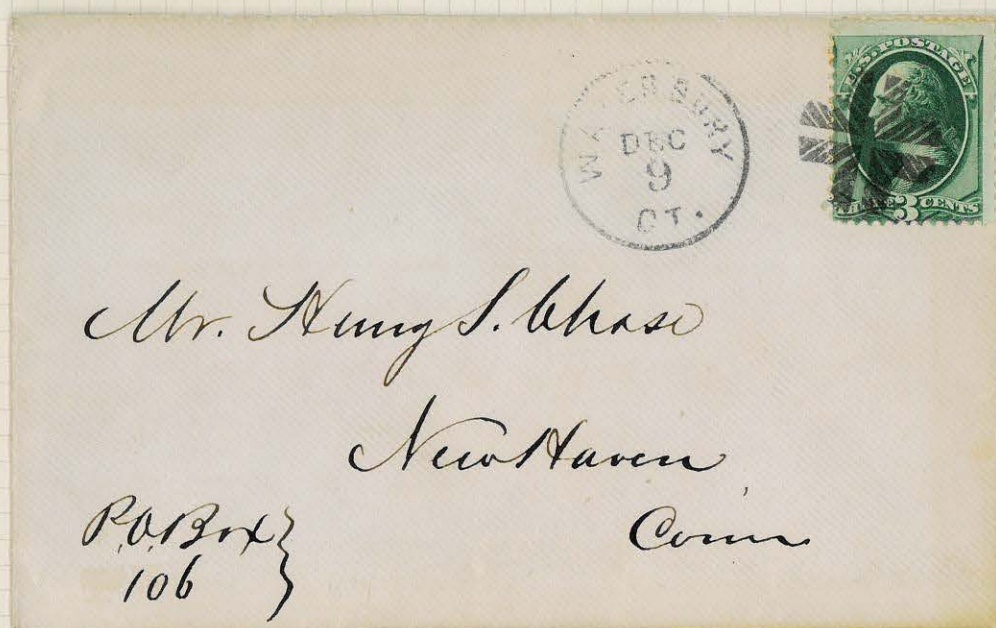 WATERBURY
DEC
9
CT.
U.S. POSTAGE
3 CENTS
Mr. Henry S. Chase
New Haven
Conn
P.O. Box
106